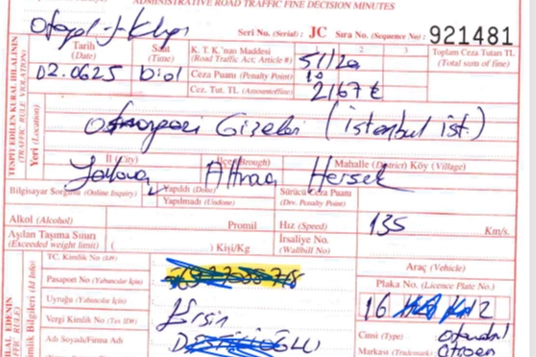 ADMINISTRATIVE ROAD TRAFFIC FINE DECISION MINUTES
Seri No. (Serial): JC Sıra No. (Sequence No): 921481
Tarih (Date) Saat (Time) K. T. K.'nan Maddesi (Road Traffic Act; Article #) 51/2a 2 3 Toplam Ceza Tutarı TL (Total sum of fine)
02.0625 Ceza Puanı (Penalty Point) 10
Cez. Tut. TL (Amountoffine) 2167 ₺
TESPİT EDİLEN KURAL İHLALİNİN (TRAFFIC RULE VIOLATION)
Yeri (Location) (istanbul ist.)
İl (City) İlçe (Brough) Mahalle (District) Köy (Village)
Yalova Altınova Hersek
Bilgisayar Sorgusu (Online Inquiry) Yapıldı (Done) Sürücü Ceza Puanı
Yapılmadı (Undone) (Drv. Penalty Point)
Alkol (Alcohol) Promil Hız (Speed) 135 Km/s.
Aşılan Taşıma Sınırı (Exceeded weight limit) ( ) Kişi/Kg İrsaliye No. (Wallbill No)
T.C. Kimlik No (ID #) Araç (Vehicle)
Pasaport No (Yabancılar İçin) Plaka No. (Licence Plate No.)
Uyruğu (Yabancılar İçin) 16
Vergi Kimlik No (Tax ID#) Ersin Cinsi (Type) otomobil
Adı Soyadı/Firma Adı Markası (Trademark) Citroen
Kimlik Bilgileri (Id Info)